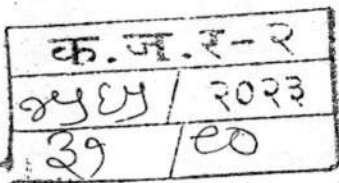 क.ज.र-२
७५६५ / २०२३
३१ / ९०